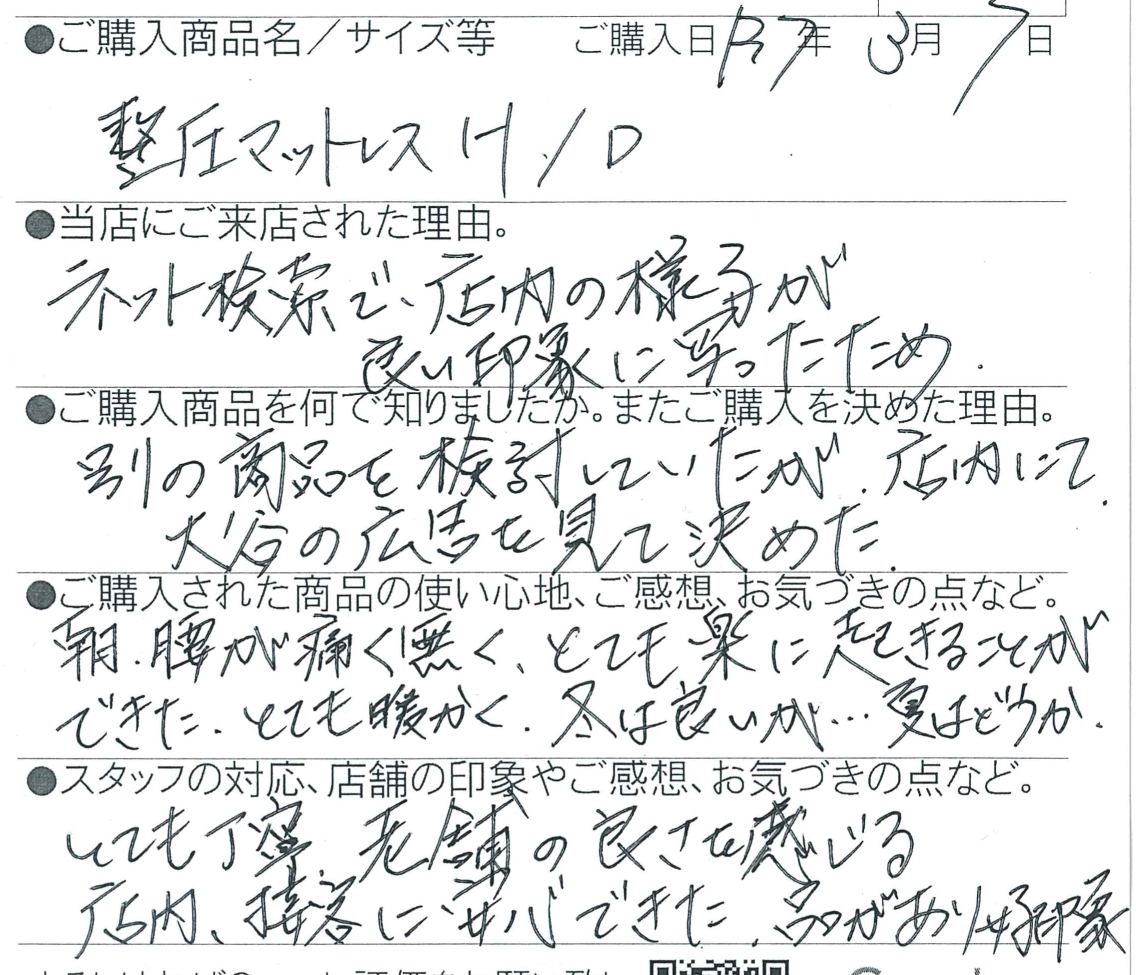 ●ご購入商品名／サイズ等　ご購入日 R7年 3月 7日
整圧マットレス H / D
●当店にご来店された理由。
ネット検索で、店内の様子が
良い印象に写ったため.
●ご購入商品を何で知りましたか。またご購入を決めた理由。
別の商品を検討していたが、店内にて、
大谷の広告を見て決めた.
●ご購入された商品の使い心地、ご感想、お気づきの点など。
朝、腰が痛く無く、とても楽に起きることが
できた. とても暖かく. 冬は良いが… 夏はどうか.
●スタッフの対応、店舗の印象やご感想、お気づきの点など。
とても丁寧 老舗の良さを感じる
店内、接客に安心できた. 品があり好印象